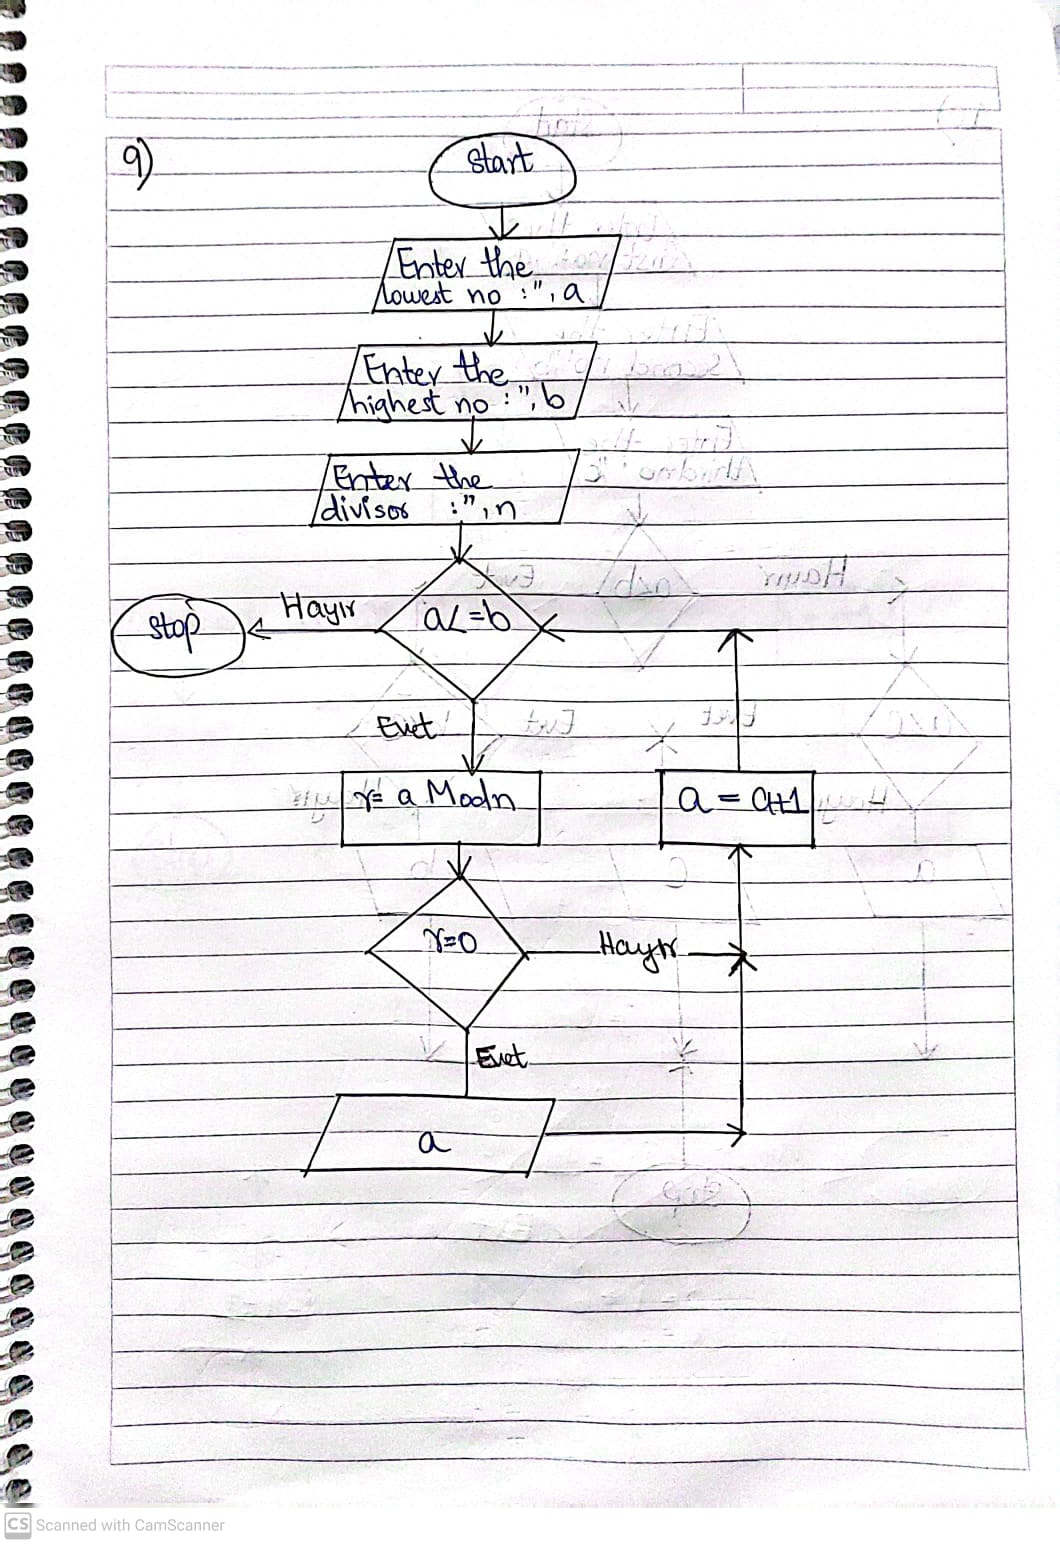 9)
Start
Enter the
lowest no :", a
Enter the
highest no :", b
Enter the
divisor :", n
a<=b
Hayır
Stop
Evet
r= a Mod n
a = a+1
r=0
Hayır
Evet
a
CS Scanned with CamScanner